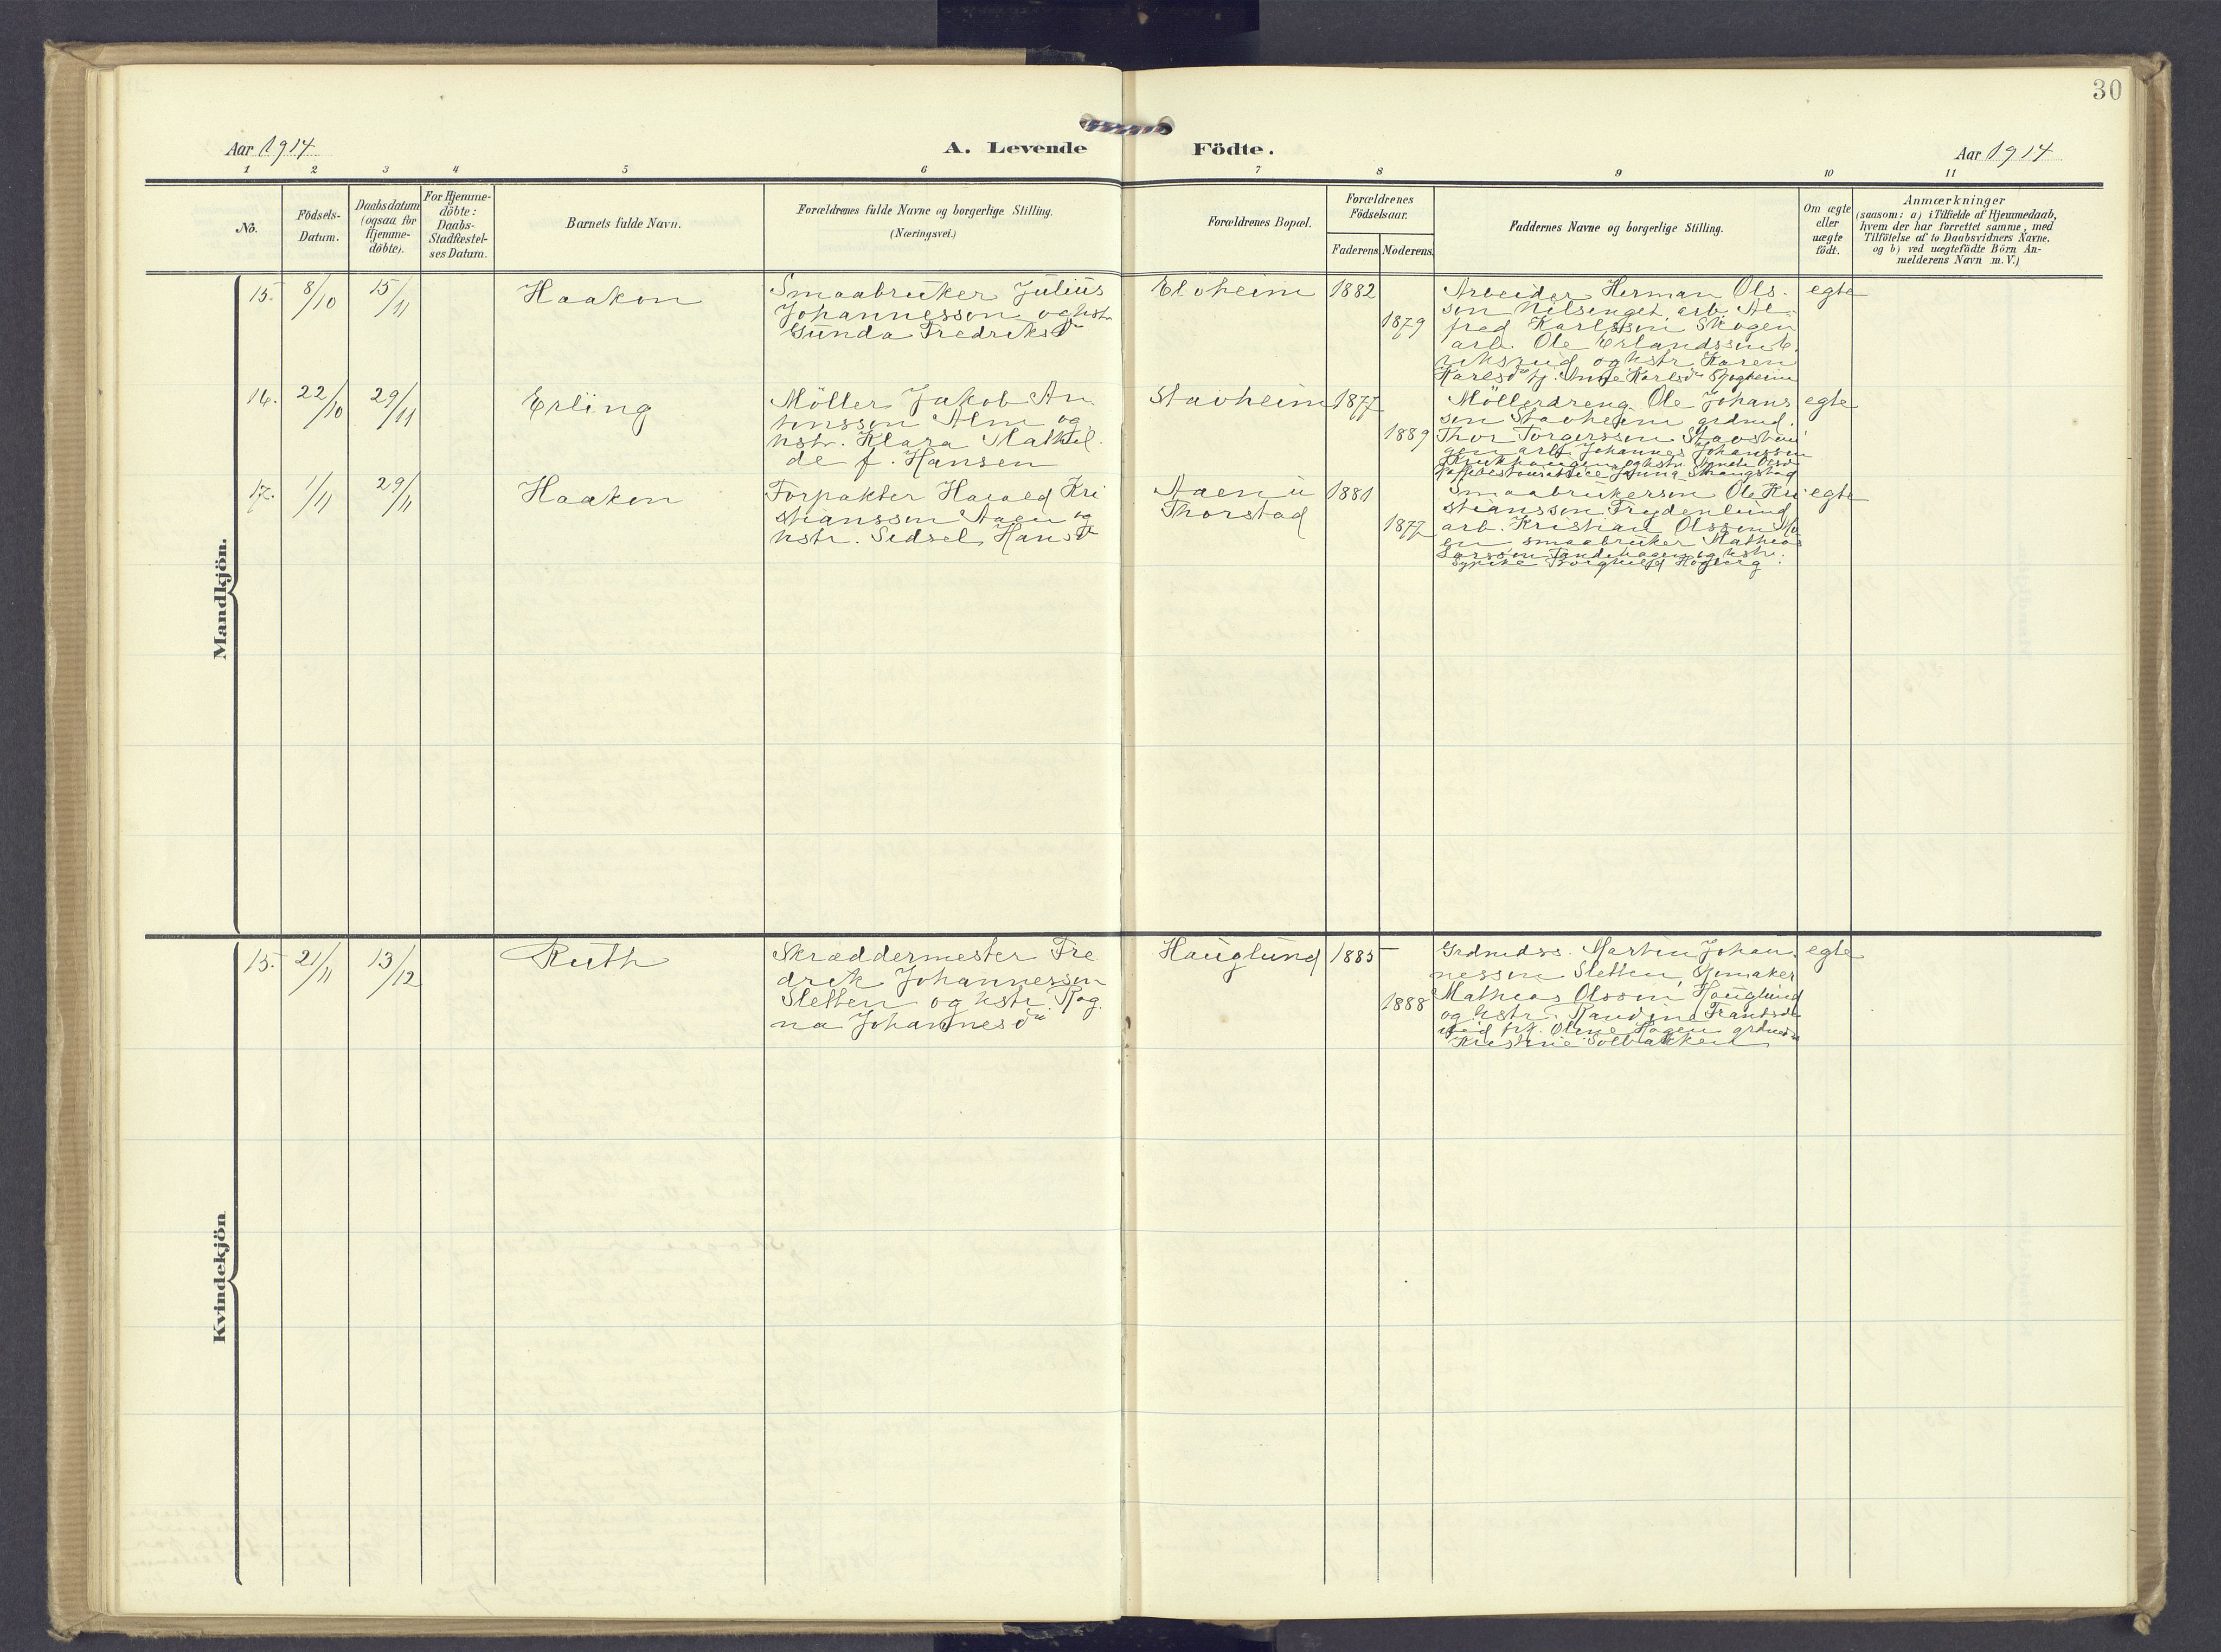 30
Aar 1914
A. Levende Födte.
Aar 1914
1 2 3 4 5 6 7 8 9 10 11
No.
Födsels-
Datum.
Daabsdatum
(ogsaa for
Hjemme-
döbte).
For Hjemme-
döbte:
Daabs-
Stadfæstel-
ses Datum.
Barnets fulde Navn.
Forældrenes fulde Navne og borgerlige Stilling.
(Næringsvei.)
Forældrenes Bopæl.
Forældrenes
Födselsaar.
Faderens Moderens
Faddernes Navne og borgerlige Stilling.
Om ægte
eller
uægte
födt.
Anmærkninger
(saasom: a) i Tilfælde af Hjemmedaab,
hvem der har forrettet samme, med
Tilföielse af to Daabsvidners Navne,
og b) ved uægtefödte Börn An-
melderens Navn m.V.)
Mandkjön.
15. 8/10 15/11
Haakon
Smaabruker Julius
Johannesson og hstr
Gunda Fredriksdr
Elvheim
1882
1879
Arbeider Herman Ols-
son Nilsenget, arb. Al-
fred Karlsson Skogen
arb. Ole Erlandsson
og hstr. Karen
Karlsdr tj. Karlsdr
egte
16. 22/10 29/11
Erling
Möller Jakob An
tonsson Alm og
hstr. Klara Mathil-
de f. Hansen
Stavheim
1877
1889
Möllerdreng Ole Johans
son Stavheim grdmd.
Thor Torgersson
arb. Johannes Johansson
og hstr.
egte
17. 1/11 29/11
Haakon
Forpakter Harald Kri
stiansson Aaen og
hstr. Sidsel Hansdr
Aaen u
Thorstad
1881
1877
Smaabrukerson Ole Kri
stiansson Frydenlund
arb. Kristian Olsson Mo
en smaabruker Mathias
Larsson og hstr.
Syerske Borghild Hogberg.
egte
Kvindekjön
15. 21/11 13/12
Ruth
Skræddermester Fre
drik Johannesson
Sletten og hstr. Rag
na Johannesdr
Hauglund
1885
1888
Grdmdss. Martin Johan
nesson Sletten, Skomaker
Mathias Olsson Hauglund
og hstr. Randine Frantsdr
Oline Hagen
Kristine Solbakken
egte